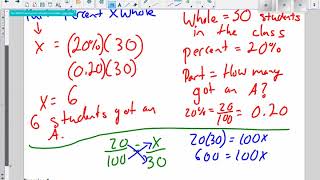 Percent X Whole
x = (20%)(30)
(0.20)(30)
x = 6
6 students got an
A.
Whole = 30 students
in the class
percent = 20%
Part = How many
got an A?
20% = 20/100 = 0.20
20/100 = x/30
20(30) = 100x
600 = 100x